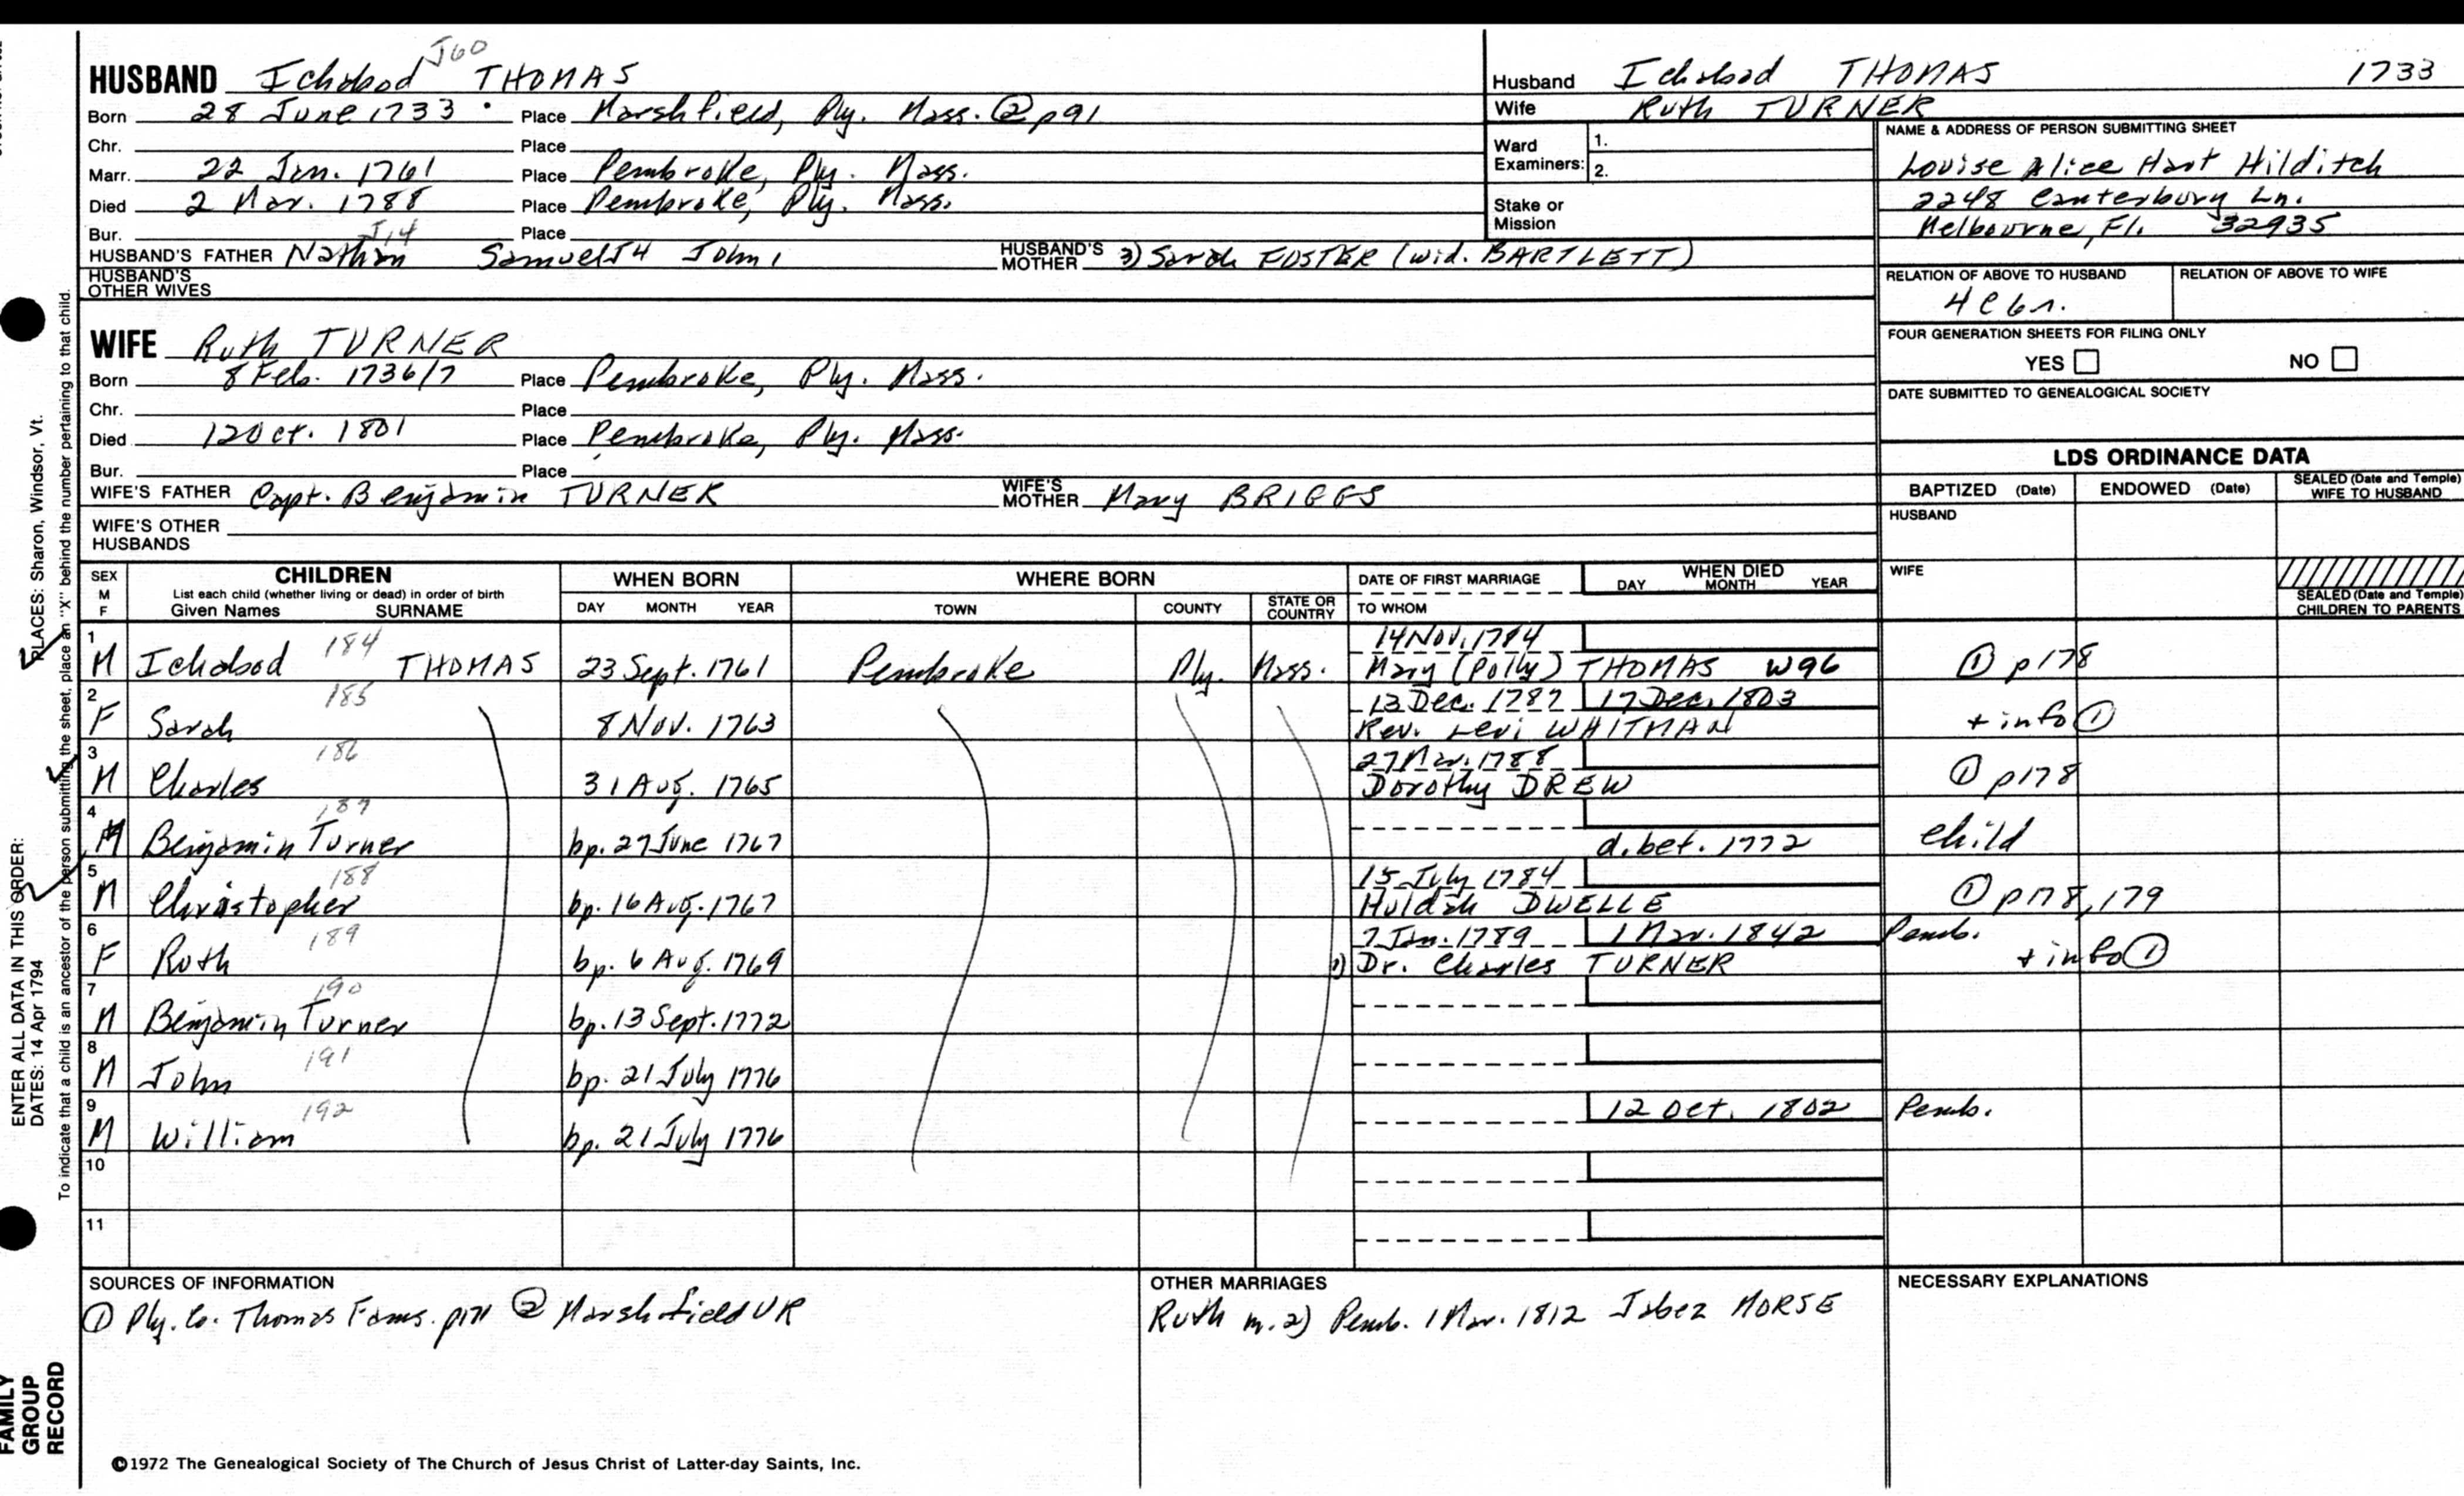 HUSBAND Ichabod J60 THOMAS
Born 28 June 1733 Place Marshfield, Ply. Mass. ② p91
Chr. Place
Marr. 22 Jan. 1761 Place Pembroke, Ply. Mass.
Died 2 Mar. 1788 Place Pembroke, Ply. Mass.
Bur. Place
HUSBAND'S FATHER Nathan J14 Samuel J4 John 1 HUSBAND'S MOTHER 3) Sarah FOSTER (wid. BARTLETT)
HUSBAND'S OTHER WIVES
Husband Ichabod THOMAS 1733
Wife Ruth TURNER
Ward Examiners: 1.
2.
Stake or Mission
NAME & ADDRESS OF PERSON SUBMITTING SHEET
Louise Alice Hart Hilditch
2248 Canterbury Ln.
Melbourne, Fl. 32935
RELATION OF ABOVE TO HUSBAND RELATION OF ABOVE TO WIFE
4 C 6r.
FOUR GENERATION SHEETS FOR FILING ONLY
YES NO
DATE SUBMITTED TO GENEALOGICAL SOCIETY
WIFE Ruth TURNER
Born 8 Feb. 1736/7 Place Pembroke, Ply. Mass.
Chr. Place
Died 12 Oct. 1801 Place Pembroke, Ply. Mass.
Bur. Place
WIFE'S FATHER Capt. Benjamin TURNER WIFE'S MOTHER Mary BRIGGS
WIFE'S OTHER HUSBANDS
LDS ORDINANCE DATA
BAPTIZED (Date) ENDOWED (Date) SEALED (Date and Temple) WIFE TO HUSBAND
HUSBAND
WIFE
SEALED (Date and Temple) CHILDREN TO PARENTS
SEX M F CHILDREN List each child (whether living or dead) in order of birth Given Names SURNAME WHEN BORN DAY MONTH YEAR WHERE BORN TOWN COUNTY STATE OR COUNTRY DATE OF FIRST MARRIAGE TO WHOM WHEN DIED DAY MONTH YEAR
1 14 Nov. 1784
M Ichabod 184 THOMAS 23 Sept. 1761 Pembroke Ply. Mass. Mary (Polly) THOMAS W96 ① p178
2 13 Dec. 1787 17 Dec. 1803
F Sarah 185 8 Nov. 1763 Rev. Levi WHITMAN + info ①
3 27 Mar. 1788
M Charles 186 31 Aug. 1765 Dorothy DREW ① p178
4
M Benjamin Turner 187 bp. 27 June 1767 d. bef. 1772 child
5 15 July 1784
M Christopher 188 bp. 16 Aug. 1767 Huldah DWELLE ① p178, 179
6 7 Jan. 1789 1 Mar. 1842 Pemb.
F Ruth 189 bp. 6 Aug. 1769 1) Dr. Charles TURNER + info ①
7
M Benjamin Turner 190 bp. 13 Sept. 1772
8
M John 191 bp. 21 July 1776
9 12 Oct. 1802 Pemb.
M William 192 bp. 21 July 1776
10
11
SOURCES OF INFORMATION
① Ply. Co. Thomas Fams. p171 ② Marshfield VR
OTHER MARRIAGES
Ruth m. 2) Pemb. 1 Mar. 1812 Jabez MORSE
NECESSARY EXPLANATIONS
©1972 The Genealogical Society of The Church of Jesus Christ of Latter-day Saints, Inc.
PLACES: Sharon, Windsor, Vt.
To indicate that a child is an ancestor of the person submitting the sheet, place an "X" behind the number pertaining to that child.
ENTER ALL DATA IN THIS ORDER:
DATES: 14 Apr 1794
FAMILY
GROUP
RECORD